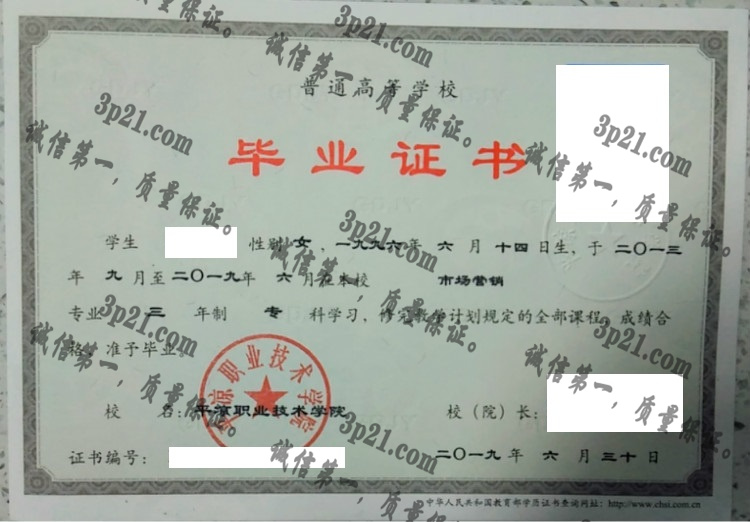 普通高等学校
毕业证书
学生 性别 女，一九九六年 六 月 十四日生，于 二〇一三
年 九 月至二〇一九年 六 月在本校 市场营销
专业 三 年制 专 科学习，修完教学计划规定的全部课程，成绩合
格，准予毕业。
平凉职业技术学院
校 名：平凉职业技术学院 校（院）长：
证书编号： 二〇一九年 六 月 三十日
中华人民共和国教育部学历证书查询网址：http://www.chsi.com.cn
3p21.com
诚信第一，质量保证。
3p21.com
诚信第一，质量保证。
3p21.com
诚信第一，质量保证。
3p21.com
诚信第一，质量保证。
3p21.com
诚信第一，质量保证。
3p21.com
诚信第一，质量保证。
3p21.com
诚信第一，质量保证。